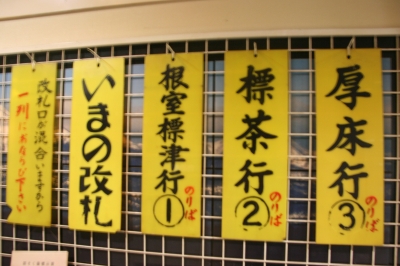 厚床行③
のりば
標茶行②
のりば
根室標津行①
のりば
いまの改札
改札口が混合いますから
一列にお並び下さい